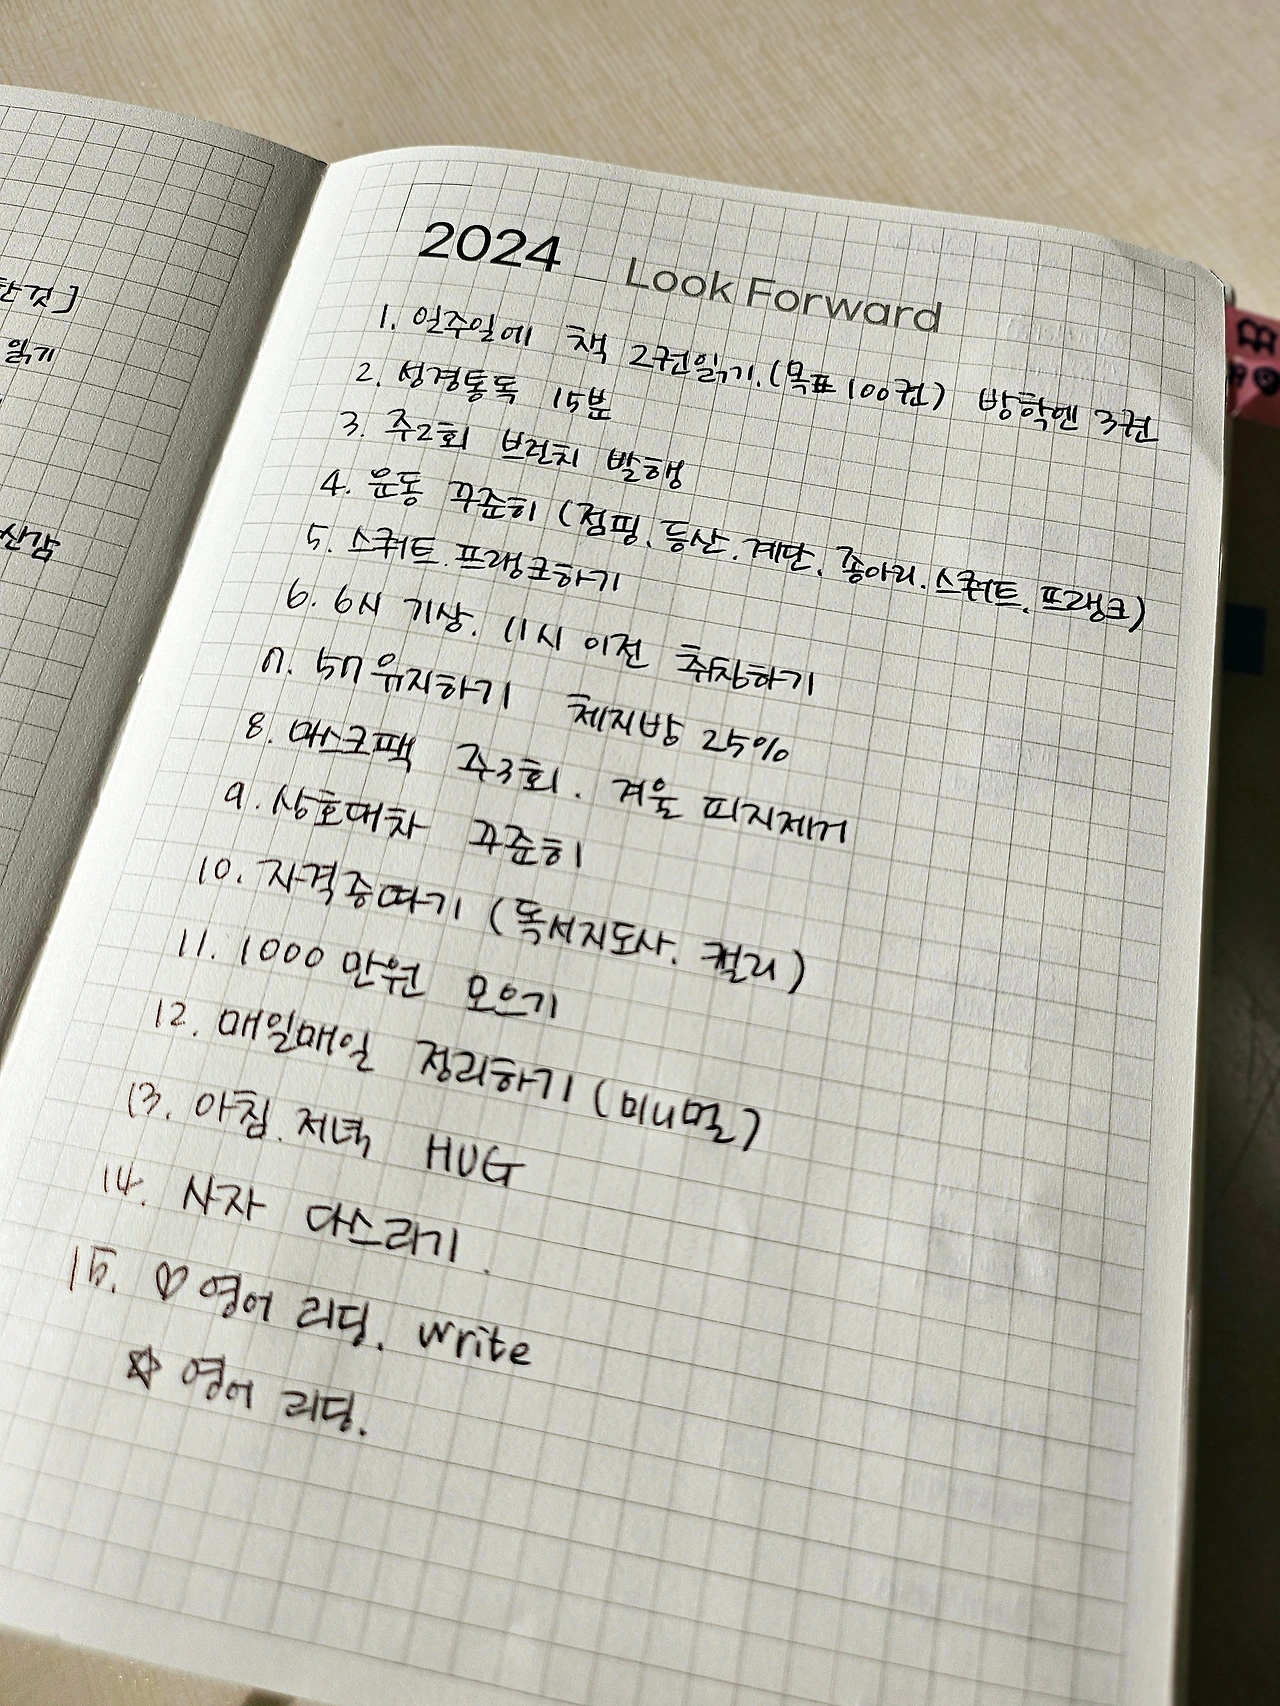 한것]
읽기
산감
2024 Look Forward
1. 일주일에 책 2권읽기.(목표 100권) 방학엔 3권
2. 성경통독 15분
3. 주2회 브런치 발행
4. 운동 꾸준히 (점핑. 등산. 계단. 종아리. 스쿼트. 프랭크)
5. 스쿼트. 프랭크하기
6. 6시 기상. 11시 이전 취침하기
7. 57유지하기 체지방 25%
8. 마스크팩 주3회. 겨울 피지제거
9. 상호대차 꾸준히
10. 자격증따기 (독서지도사. 캘리)
11. 1000만원 모으기
12. 매일매일 정리하기 (미니멀)
13. 아침. 저녁 HUG
14. 사자 다스리기.
15. ♡ 영어 리딩. write
☆ 영어 리딩.